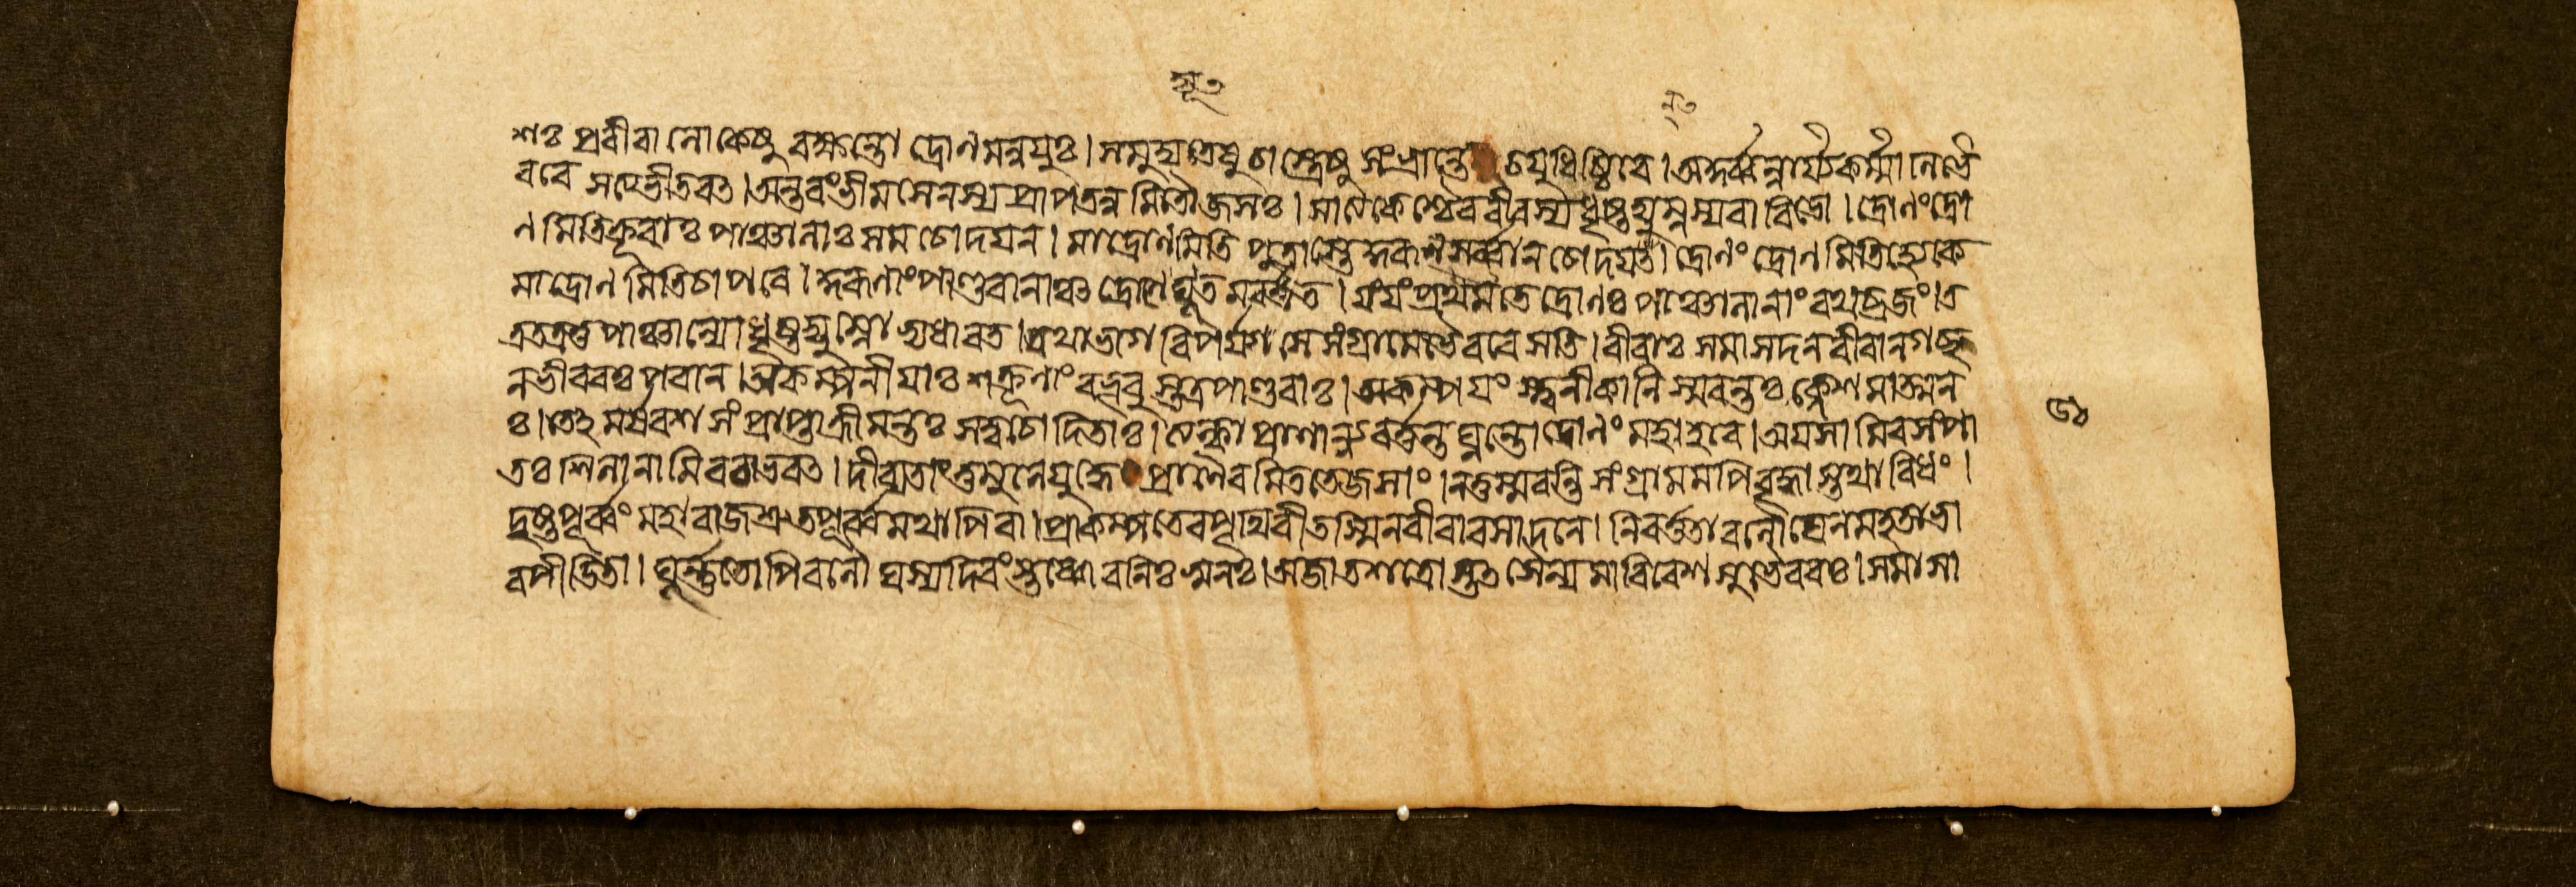 শঃ প্রবীবা লোকেষু বক্ষন্তো দ্রোণমন্বযুঃ। সমুদ্যতেষু শস্ত্রেষু সংপ্রাপ্তে চ যুধিষ্ঠিবে। অকুর্ব্বন্নার্য্যকর্ম্মাণি ভৈ
ববে সত্যভীতবৎ। অন্তবং ভীমসেনস্য প্রাপতন্নমিতৌজসঃ। সাত্যকেশ্চৈব বীবস্য ধৃষ্টদ্যুম্নস্য বা বিভো। দ্রোণং দ্রো
ণমিতি ক্রূবাঃ পাঞ্চালাঃ সমচোদযন। মা দ্রোণমিতি পুত্রাস্তে কুৰূন্ সর্ব্বানচোদযন্। দ্রোণং দ্রোণমিতি হ্যেকে
মা দ্রোণমিতি চাপবে। কুৰূণাং পাণ্ডবানাঞ্চ দ্রোণদ্যূতমবর্ত্তত। যং যং প্রমথতে দ্রোণঃ পাঞ্চালানাং বথব্রজং। ত
ত্র তত্র তু পাঞ্চাল্যো ধৃষ্টদ্যুম্নোভ্যধাবত। যথাভাগ বিপর্য্যাসে সংগ্রামে ভৈববে সতি। বীবাঃ সমাসদন বীবানগচ্ছ
ন ভীববঃ পবান। অকম্পনীযাঃ শত্রূণাং বভূবুস্তত্র পাণ্ডবাঃ। অকম্পযং স্ত্বনীকানি স্মবন্তঃ ক্লেশমাত্মন
ঃ। তে ঽমর্ষবশ সংপ্রাপ্তা হ্রীমন্তঃ সত্ত্বচোদিতাঃ। ত্যক্ত্বা প্রাণান্ন্যবর্ত্তন্ত ঘ্নন্তো দ্রোণং মহাহবে। অযসামিব সংপা
তঃ শিলানামিব চাভবৎ। দীব্যতাং তুমুলে যুদ্ধে প্রাণৈবমিততেজসাং। ন তু স্মবন্তি সংগ্রামমপি বৃদ্ধাস্তথাবিধং।
দৃষ্টপূর্ব্বং মহাবাজ শ্রুতপূর্ব্বমথাপি বা। প্রাকম্পতেব পৃথিবী তস্মিন বীবাবসাদনে। নিবর্ত্ততা বলৌঘেন মহতা ভা
বপীডিতা। ঘূর্ণতোপি বলৌঘস্য দিবং স্তব্ধ্বেব নিঃস্বনঃ। অজাতশত্রোস্তৎ সৈন্যমাবিবেশ সুভৈববঃ। সমাসা